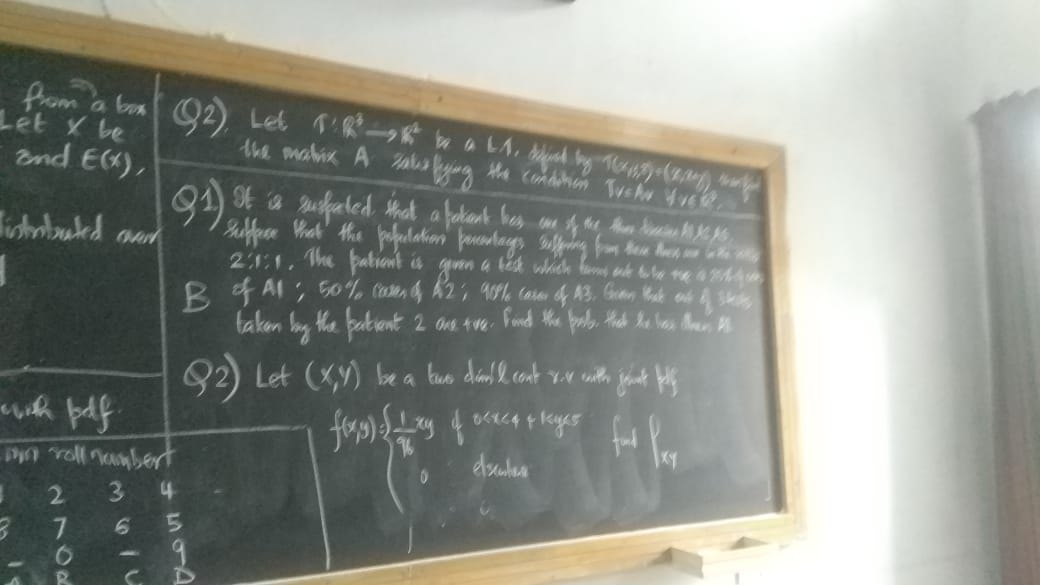 from a box
Let X be
and E(X),
distributed over
with pdf.
roll number
2 3 4
8 7 6 5
- 0 - 9
B C D
Q2). Let T: R³ → R² be a L.T. defined by
the matrix A satisfying the condition Tv = Av ∀ v ∈ R³.
Q1) It is suspected that a patient has one of the three diseases A1, A2, A3
Suppose that the population percentages suffering from these
2:1:1. The patient is given a test which turns out to be +ve in
B of A1; 50% cases of A2; 90% cases of A3. Given that out of 3 tests
taken by the patient 2 are +ve. Find the prob. that he has
Q2) Let (X,Y) be a two dim'l cont r.v with joint pdf
f(x,y) = { 1/96 xy if 0<x<4, 1<y<5 find ρxy
0 elsewhere